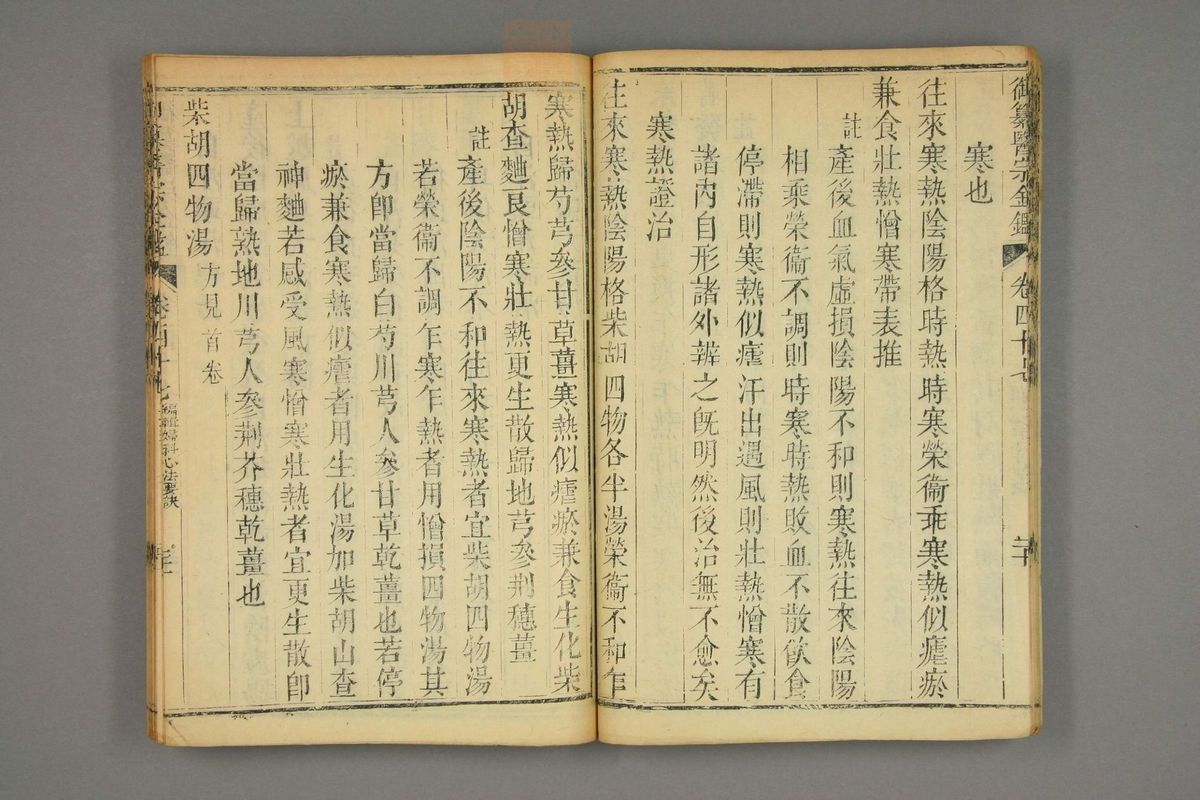 御纂醫宗金鑑 卷四十七 二十
寒也
往來寒熱陰陽格時熱時寒榮衞乖寒熱似瘧瘀
兼食壯熱憎寒帶表推
註產後血氣虛損陰陽不和則寒熱往來陰陽
相乘榮衞不調則時寒時熱敗血不散飲食
停滯則寒熱似瘧汗出遇風則壯熱憎寒有
諸內自形諸外辨之旣明然後治無不愈矣
寒熱證治
往來寒熱陰陽格柴胡四物各半湯榮衞不和乍
寒熱歸芍芎參甘草薑寒熱似瘧瘀兼食生化柴
胡查麯良憎寒壯熱更生散歸地芎參荆穗薑
註產後陰陽不和往來寒熱者宜柴胡四物湯
若榮衞不調乍寒乍熱者用增損四物湯其
方卽當歸白芍川芎人參甘草乾薑也若停
瘀兼食寒熱似瘧者用生化湯加柴胡山查
神麯若感受風寒憎寒壯熱者宜更生散卽
當歸熟地川芎人參荆芥穗乾薑也
柴胡四物湯 方見首卷
編輯婦科心法要訣